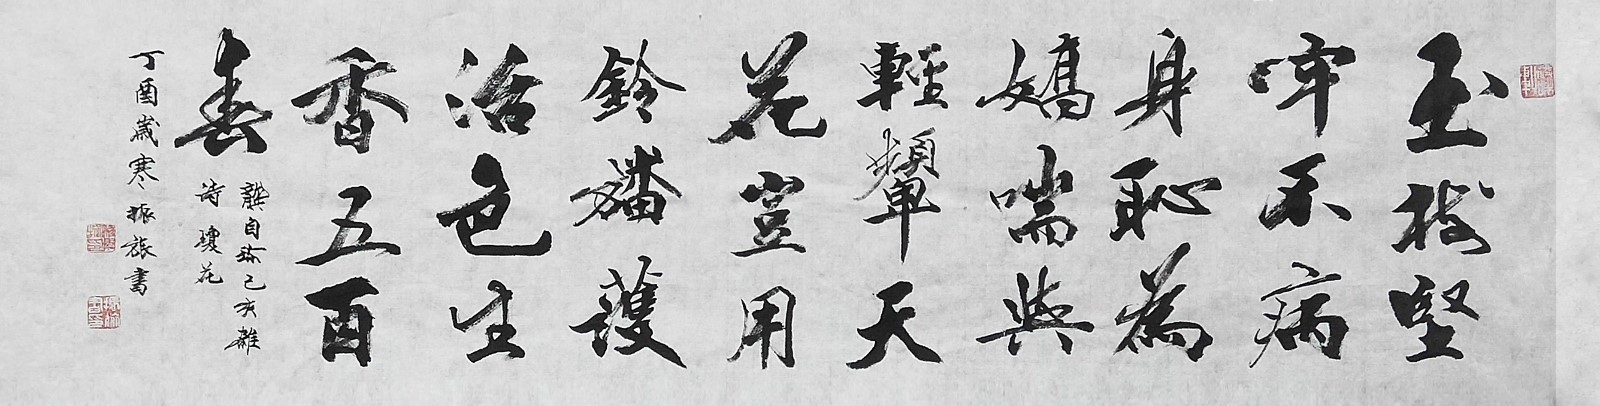 玉樹堅
牢不病
身恥為
嬌喘與
輕顰天
花豈用
鈴旛護
活色生
香五百
春
龔自珍己亥雜
詩瓊花
丁酉歲寒振旅書